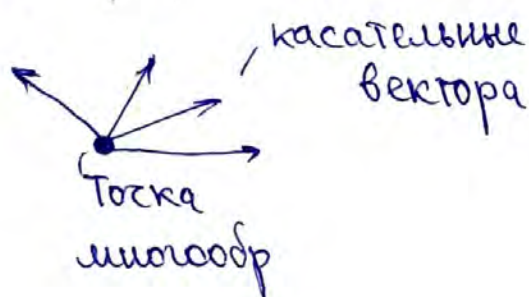 касательные
вектора
Точка
многообр